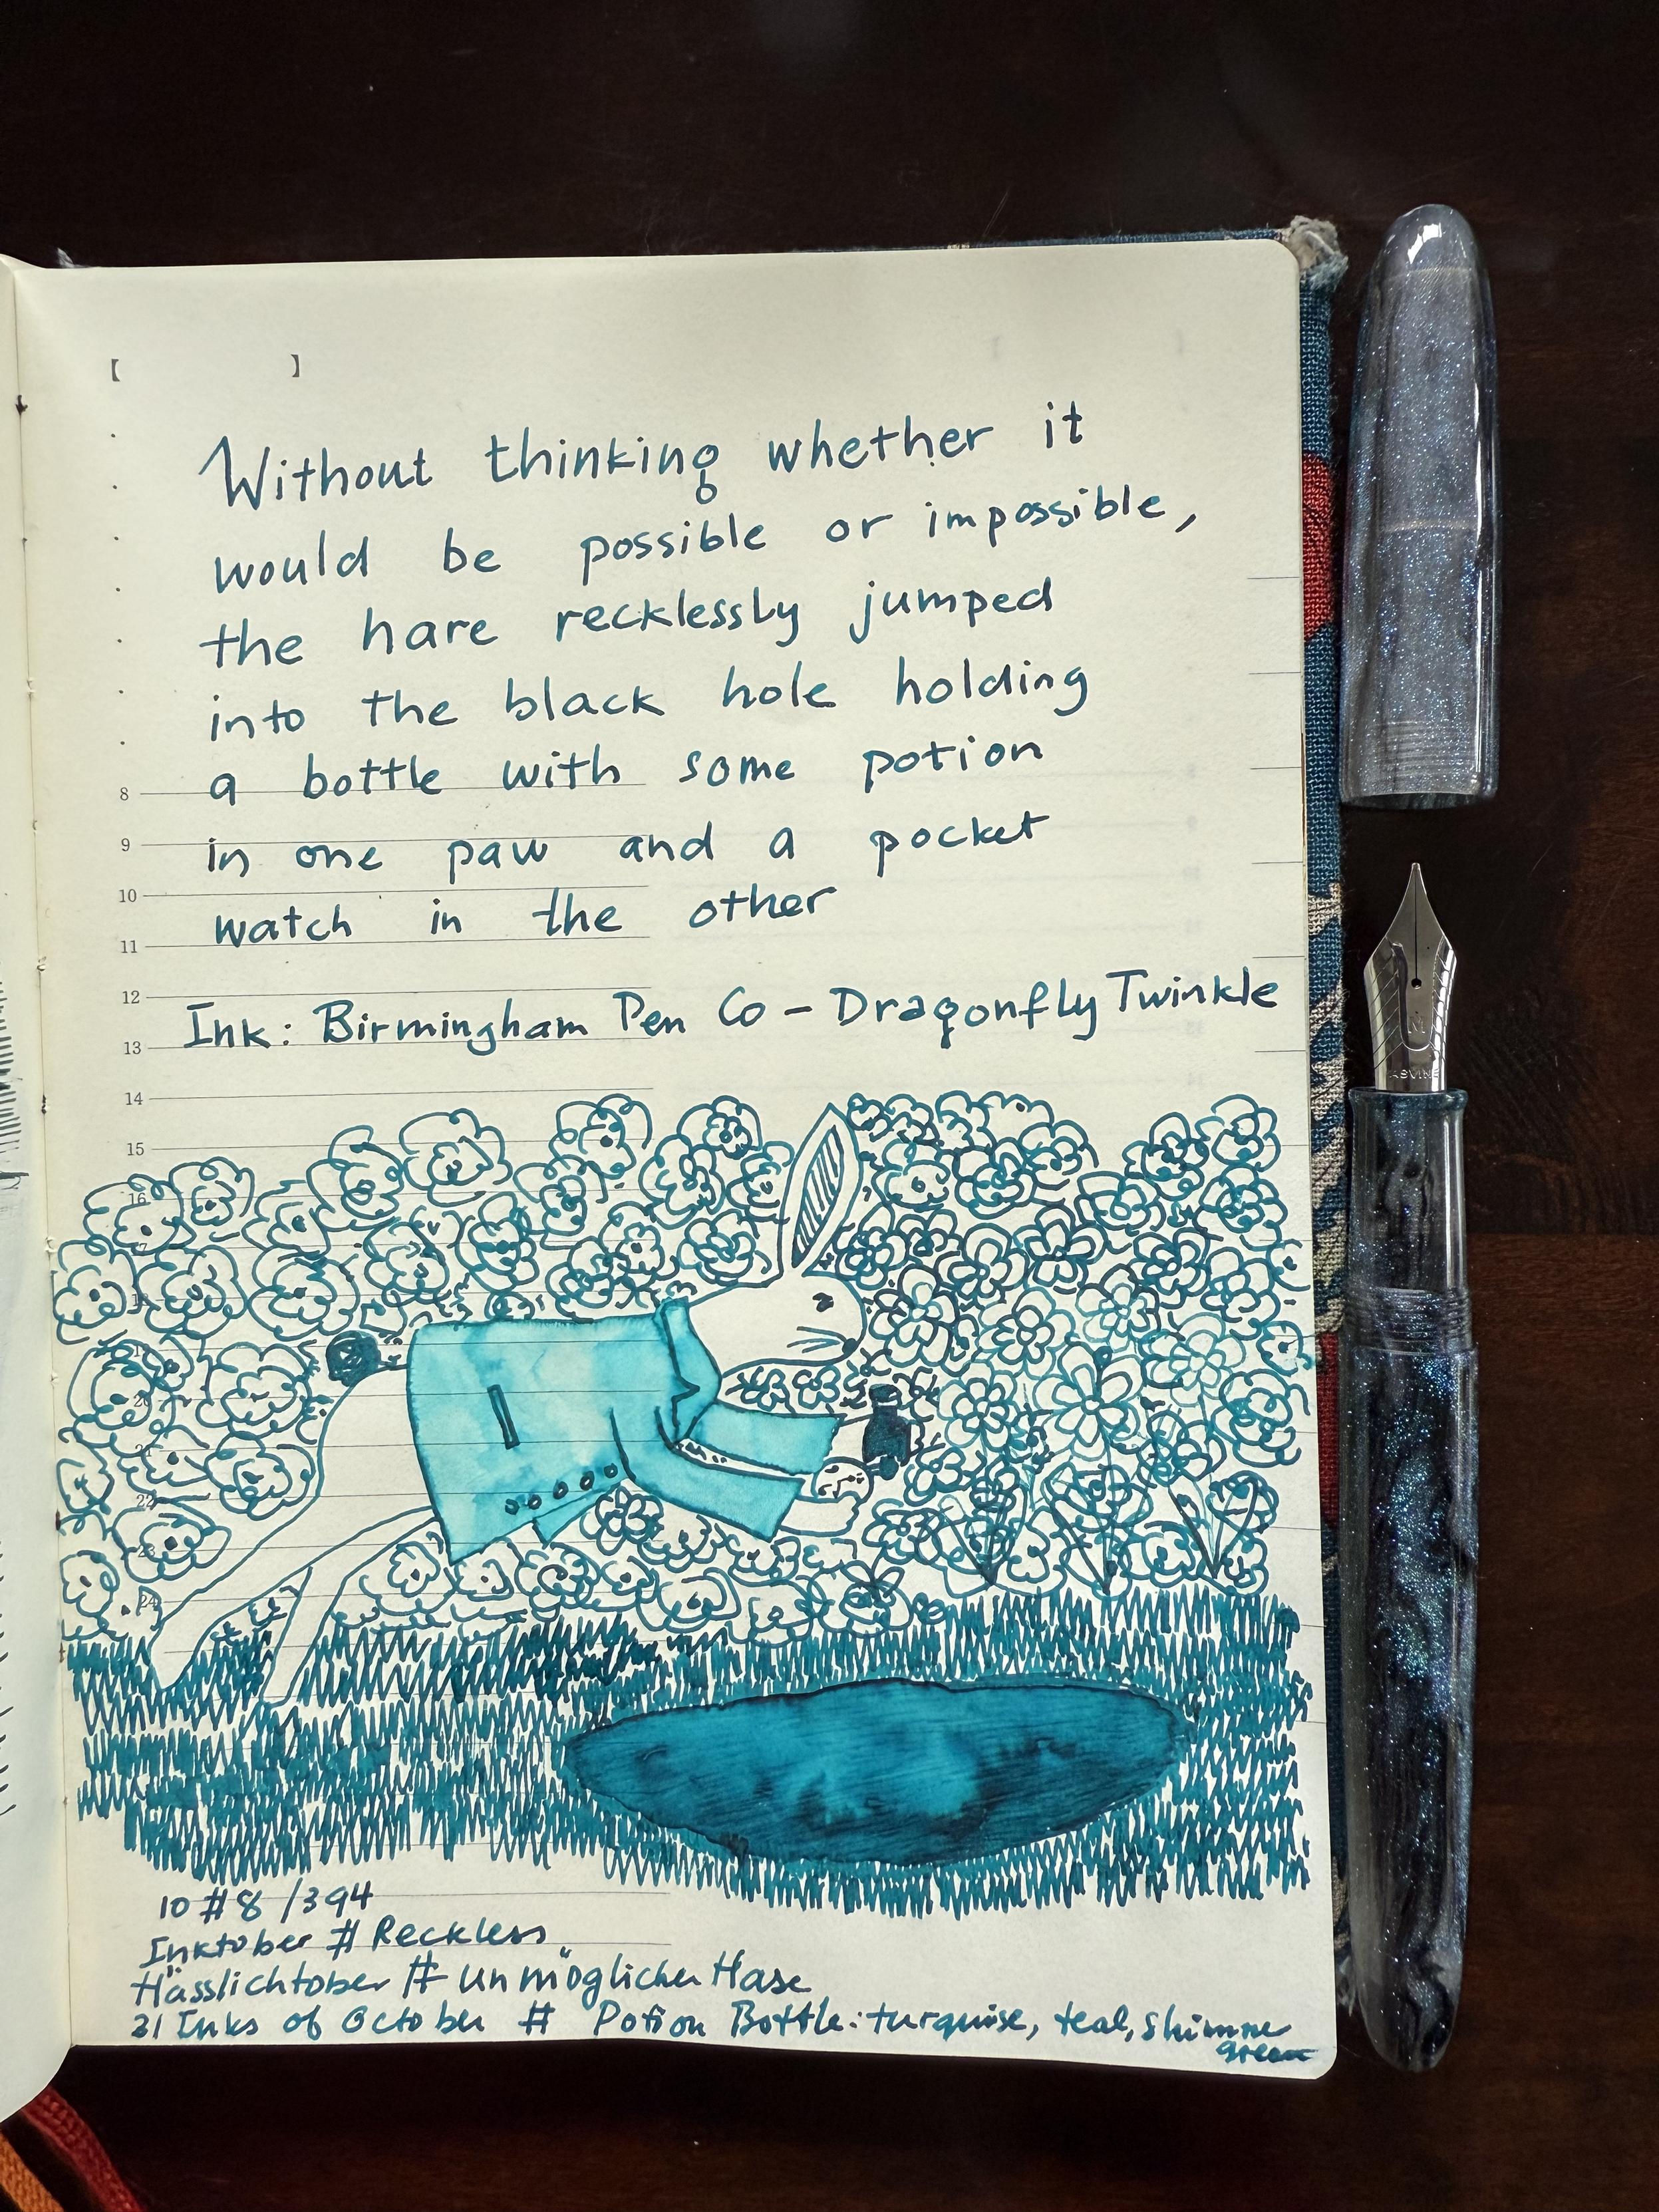 【 】
Without thinking whether it
would be possible or impossible,
the hare recklessly jumped
into the black hole holding
a bottle with some potion
in one paw and a pocket
watch in the other
Ink: Birmingham Pen Co - Dragonfly Twinkle
8
9
10
11
12
13
14
15
16
17
18
19
20
21
22
23
24
10 #8 /394
Inktober # Reckless
Hässlichtober # unmöglicher Hase
31 Inks of October # Potion Bottle: turquise, teal, shimme
green
M
ASVINE